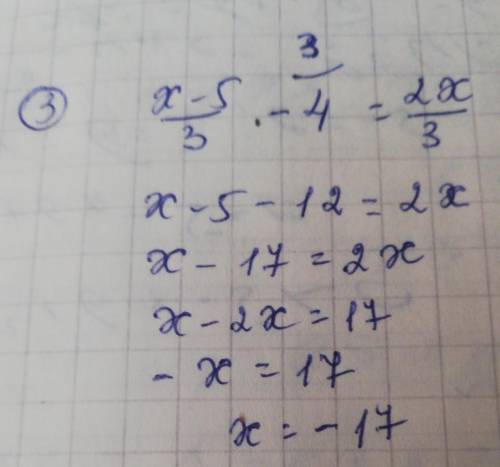 ③ (x-5)/3 - 4^3/ = 2x/3
x - 5 - 12 = 2x
x - 17 = 2x
x - 2x = 17
- x = 17
x = - 17